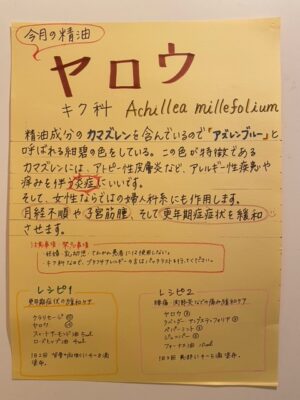 今月の精油
ヤロウ
キク科 Achillea millefolium
精油成分のカマズレンを含んでいるので「アズレンブルー」と
呼ばれる紺碧の色をしている。この色が特徴である
カマズレンには、アトピー性皮膚炎など、アレルギー性疾患や
痛みを伴う炎症にいいです。
そして、女性ならではの婦人科系にも作用します。
月経不順や子宮筋腫、そして更年期症状を緩和
させます。
注意事項・禁忌事項
・妊婦、乳幼児、てんかん患者には使用しない。
・キク科なので、ブタクサアレルギーの方はパッチテストを行ってください。
レシピ1
更年期症状の緩和ケア
クラリセージ
ヤロウ
スイートアーモンド油 5ml
ローズヒップ油
レシピ2
腰痛・関節炎などの痛み緩和ケア
ヤロウ
ラベンダー・アングスティフォリア
ペパーミント
ジュニパー